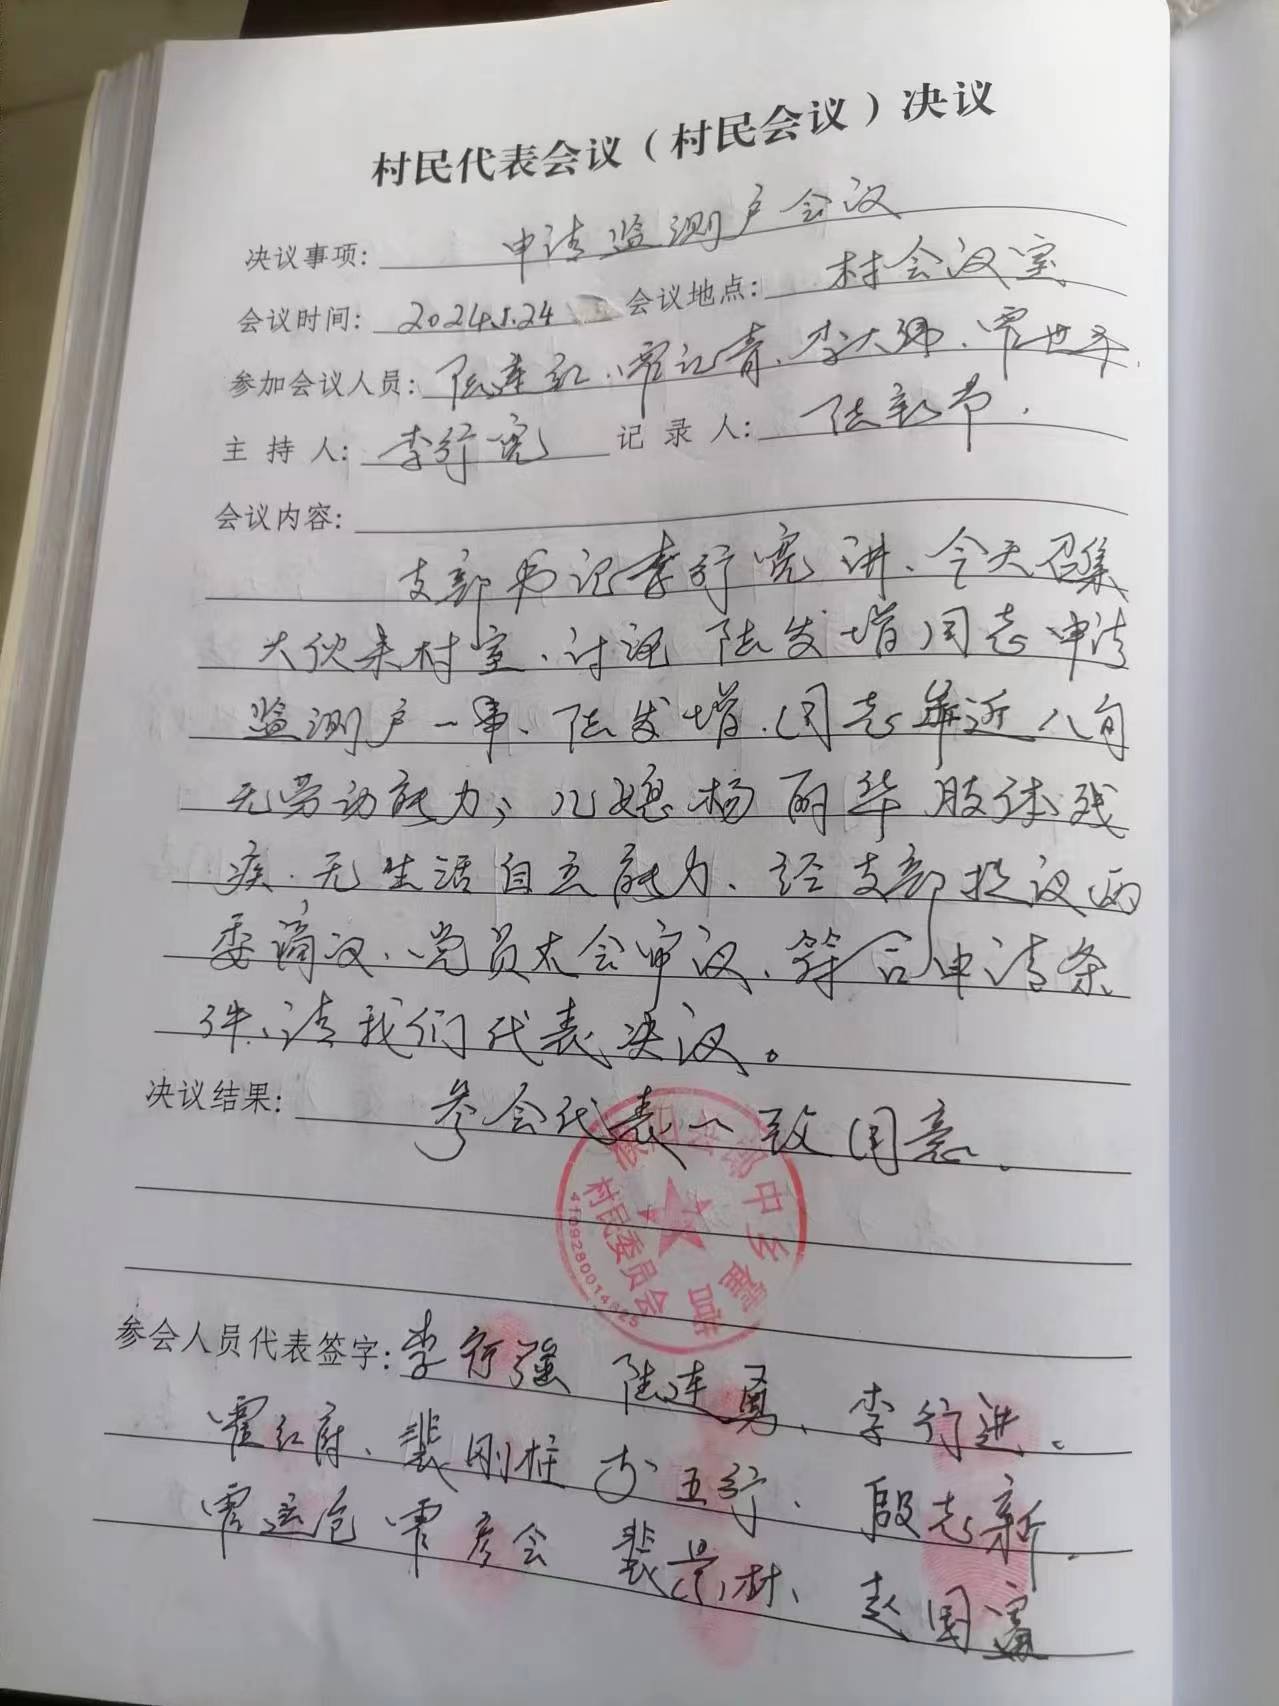 村民代表会议（村民会议）决议
决议事项：申请监测户会议
会议时间：2024.5.24 会议地点：村会议室
参加会议人员：陆连红、霍记青、李大伟、霍世
主持人：李行宽 记录人：陆彩芹.
会议内容：
支部书记李行宽讲、今天召集
大伙来村室、讨论陆发增同志申请
监测户一事、陆发增、同志年近八旬
无劳动能力；儿媳杨丽华肢体残
疾.无生活自立能力、经支部提议两
委商议、党员大会审议、符合申请条
件、请我们代表决议。
决议结果：参会代表一致同意.
中乡
村民委员会
参会人员代表签字：李行强 陆连勇、李行进。
霍红府、裴刚柱 李五行、段志新.
霍运 霍彦会 裴景村、赵国富